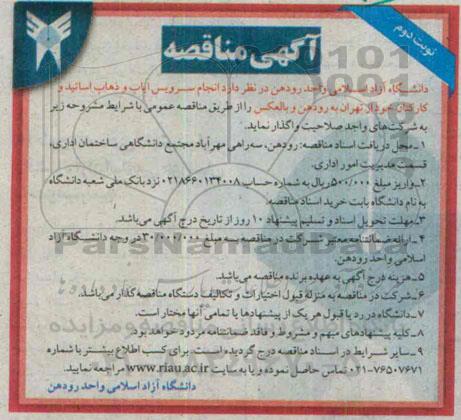 نوبت دوم
آگهی مناقصه
دانشگاه آزاد اسلامی واحد رودهن در نظر دارد انجام سرویس ایاب و ذهاب اساتید و
کارکنان خود از تهران به رودهن و بالعکس را از طریق مناقصه عمومی با شرایط مشروحه زیر
به شرکت‌های واجد صلاحیت واگذار نماید.
۱-محل دریافت اسناد مناقصه: رودهن، سه‌راهی مهرآباد مجتمع دانشگاهی ساختمان اداری،
قسمت مدیریت امور اداری.
۲-واریز مبلغ ۵۰۰/۰۰۰ ریال به شماره حساب ۰۲۱۸۶۶۰۱۳۴۰۰۸ نزد بانک ملی شعبه دانشگاه
به نام دانشگاه بابت خرید اسناد مناقصه.
۳-مهلت تحویل اسناد و تسلیم پیشنهاد ۱۰ روز از تاریخ درج آگهی می‌باشد.
۴-ارائه ضمانتنامه معتبر شرکت در مناقصه به مبلغ ۳۰/۰۰۰/۰۰۰ در وجه دانشگاه آزاد
اسلامی واحد رودهن.
۵-هزینه درج آگهی به عهده برنده مناقصه می‌باشد.
۶-شرکت در مناقصه به منزله قبول اختیارات و تکالیف دستگاه مناقصه گذار می‌باشد.
۷-دانشگاه در رد یا قبول هر یک از پیشنهادها یا تمامی آنها مختار است.
۸-کلیه پیشنهادهای مبهم و مشروط و فاقد ضمانتنامه مردود خواهد بود.
۹-سایر شرایط در اسناد مناقصه درج گردیده است. برای کسب اطلاع بیشتر با شماره
۰۲۱-۷۶۵۰۷۶۷۱ تماس حاصل نموده و یا به سایت www.riau.ac.ir مراجعه نمایید.
دانشگاه آزاد اسلامی واحد رودهن